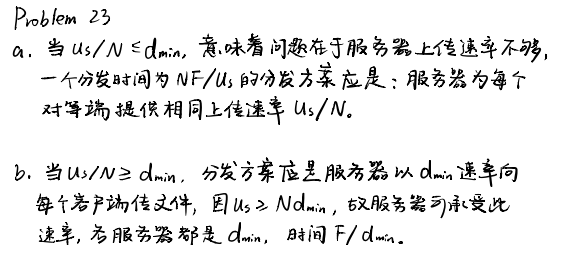 Problem 23
a. 当 us/N ≤ dmin, 意味着问题在于服务器上传速率不够,
一个分发时间为 NF/us 的分发方案应是: 服务器为每个
对等端提供相同上传速率 us/N。
b. 当 us/N ≥ dmin, 分发方案应是服务器以 dmin 速率向
每个客户端传文件, 因 us ≥ Ndmin, 故服务器可承受此
速率, 各服务器都是 dmin, 时间 F/dmin。